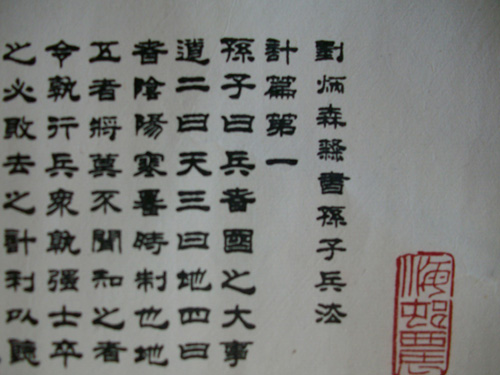 劉炳森隸書孫子兵法
計篇第一
孫子曰兵者國之大事
道二曰天三曰地四曰
者陰陽寒暑時制也地
五者將莫不聞知之者
令孰行兵眾孰强士卒
之必敗去之計利以聽